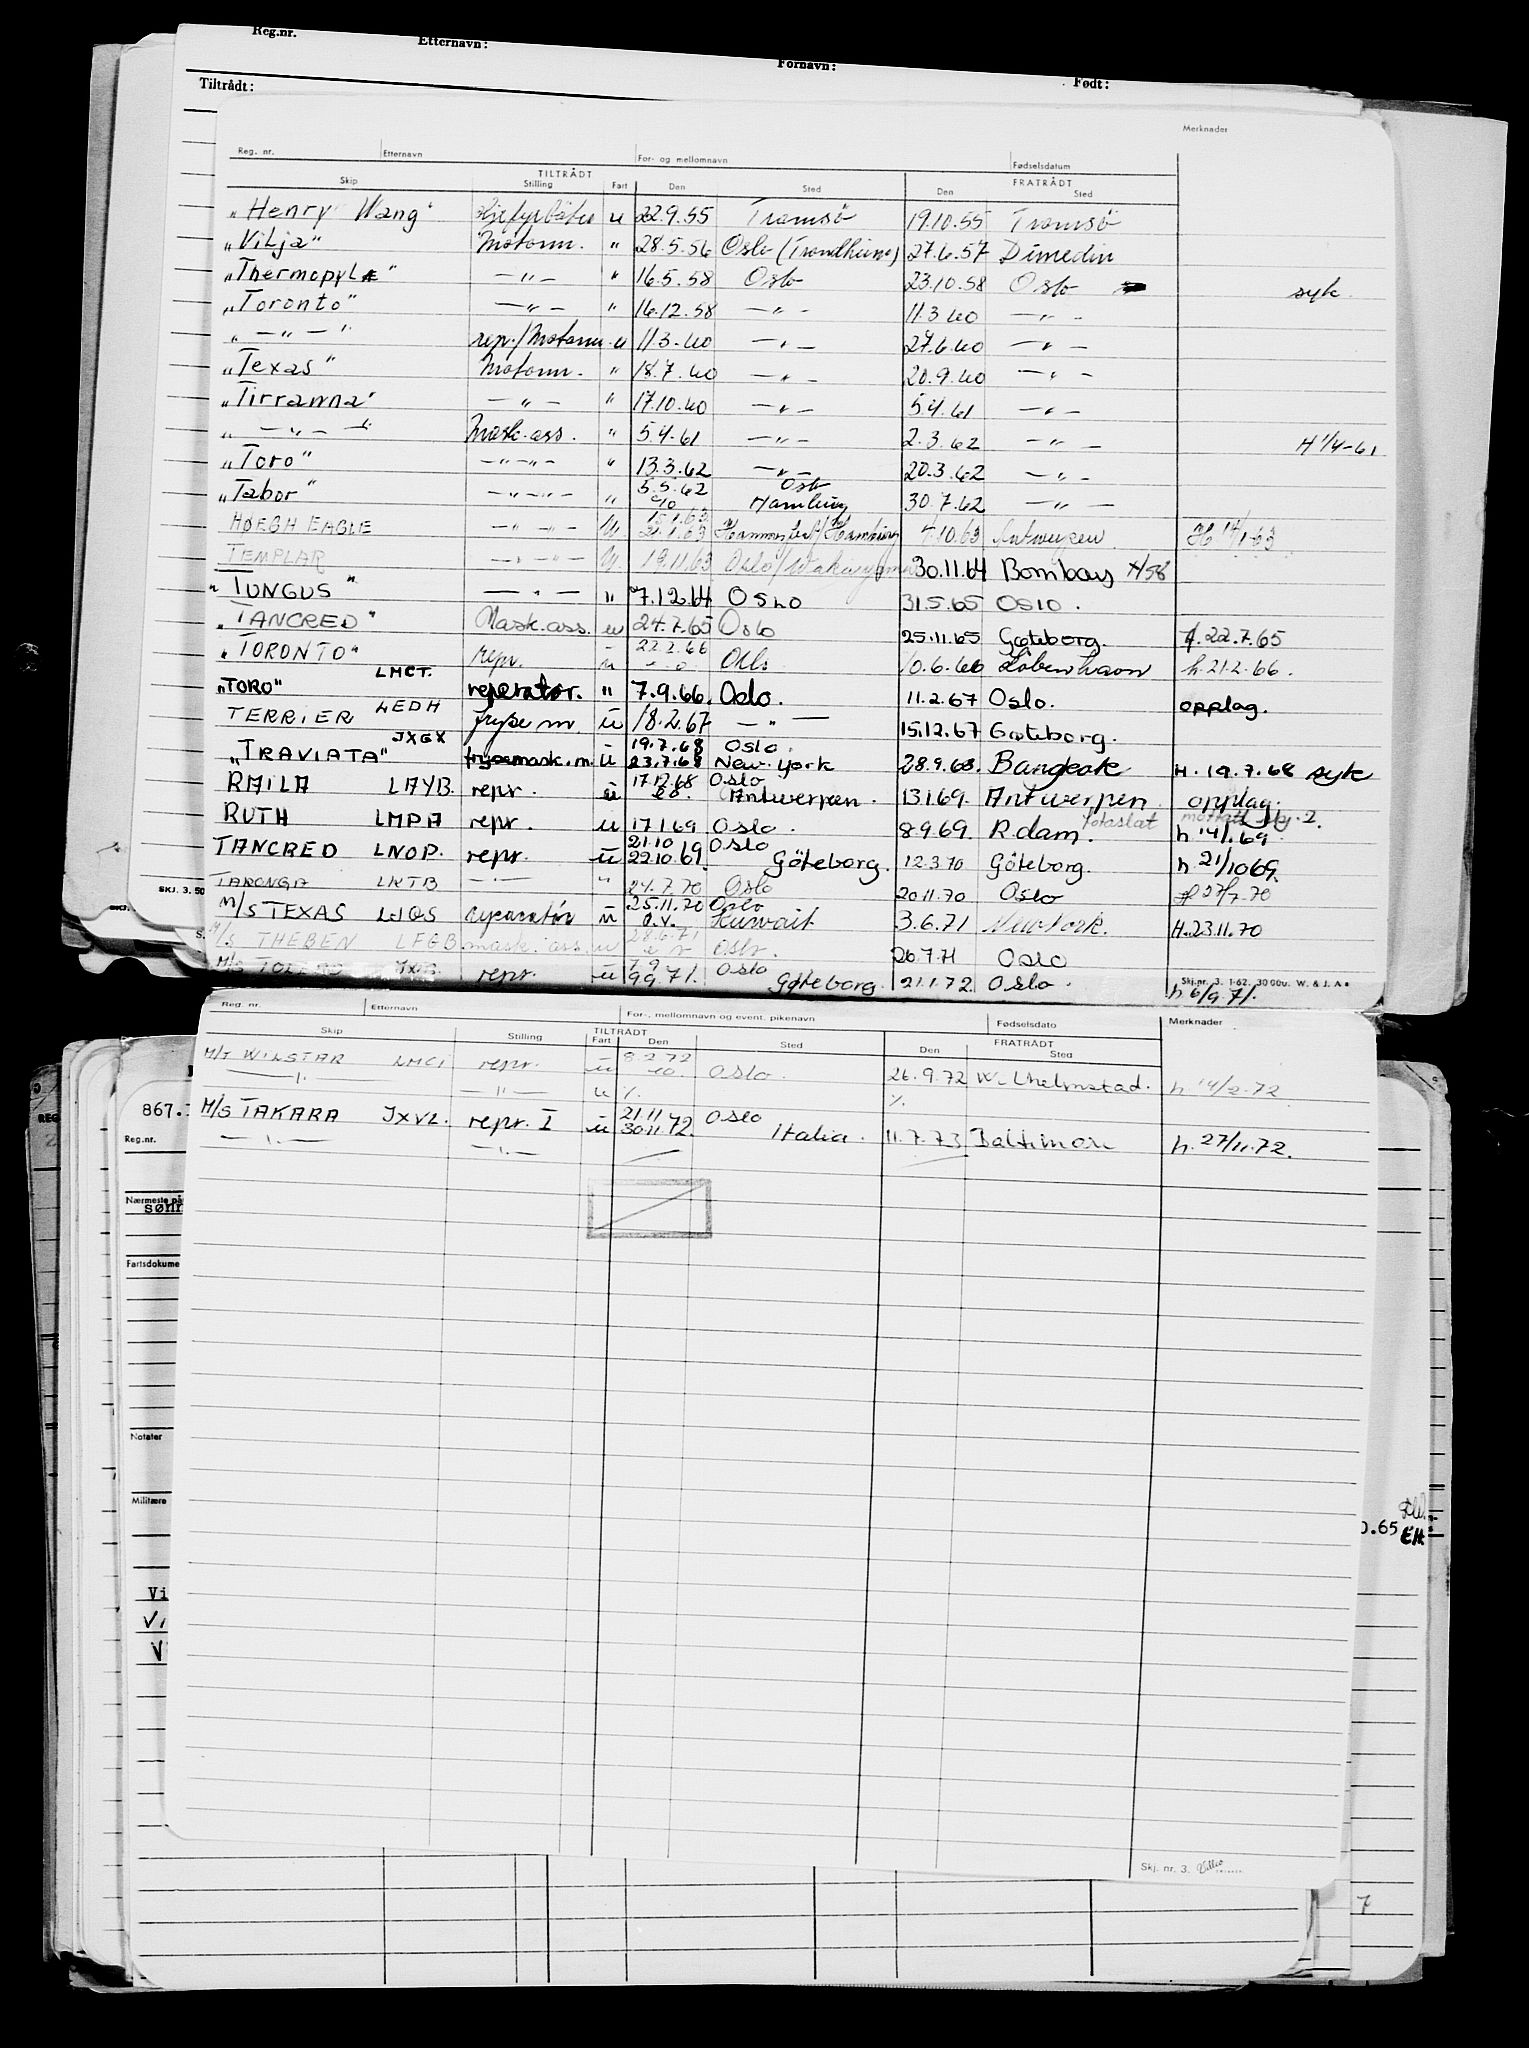 Reg.nr. Etternavn: Fornavn: Født:
Tiltrådt:
Merknader
Reg. nr. Etternavn For- og mellomnavn Fødselsdatum
TILTRÅDT FRATRÅDT
Skip Stilling Fart Den Sted Den Sted
"Henry Wang" u 22.9.55 Tromsö 19.10.55 Tromsö
"Vilja" Motorm. " 28.5.56 Oslo (Trondheim) 27.6.57 Dunedin
"Thermopylæ" — " — " 16.5.58 Oslo 23.10.58 Oslo syk.
"Toronto" — " — " 16.12.58 — " — 11.3 60 — " —
" — " — " rep./Motorm. u 11.3.60 — " — 27.6.60 — " —
"Texas" Motorm. " 18.7.60 — " — 20.9.60 — " —
"Tirranna" — " — " 17.10.60 — " — 5.4.61 — " —
" — " — " Mask.ass. " 5.4.61 — " — 2.3.62 — " — H 1/4-61
"Toro" — " — " — " 13.3.62 — " — 20.3.62 — " —
5.5.62 Oslo
"Tabor" — " — " — " Hamburg 30.7.62 — " —
HØEGH EAGLE — " — " — U. 21.1.63 Hammerfest/Hamburg 4.10.63 Antwerpen H 14/1-63
TEMPLAR — " — " — U. 19.11.63 Oslo/ 30.11.64 Bombay
"TUNGUS" — " — " 7.12.64 OSLO 31.5.65 OSLO.
"TANCRED" Mask.ass. u 24.7.65 Oslo 25.11.65 Gøteborg. 22.7.65
22.2.66
"TORONTO" repr. u — " — Oslo 10.6.66 København h. 21.2.66.
"TORO" LMCT. reperatør. " 7.9.66. Oslo. 11.2.67 Oslo. opplag.
TERRIER LEDH fryse m. u 18.2.67 — " — 15.12.67 Gøteborg.
19.7.68 Oslo.
"TRAVIATA" JXGX frysemask.m. u 23.7.68 New-York 28.9.68. Bangkok H. 19.7.68 syk
17.12.68 Oslo
RAILA LAYB. repr. u do. Antwerpen. 13.1.69. Antwerpen opplag.
RUTH LMPA repr. u 17.1.69 Oslo. 8.9.69. R.dam. h 14/1.69.
21.10 Oslo
TANCRED LNOP. repr. u 22.10.69. Göteborg. 12.3.70 Göteborg. h. 21/10 69.
TARONGA LKTB — " — " 24.7.70 Oslo 20.11.70 Oslo
25.11.70 Oslo
M/S TEXAS LJQS reparatør u o.v. Kuwait 3.6.71 New York. H. 23.11.70
28.6.71
M/S THEBEN LFGB mask. ass. u Oslo. 26.7.71 Oslo
7.9 Oslo
M/S TOLEDO repr. u 9.9.71. Gøteborg. 21.1.72. Oslo. h 6/9.71.
SKJ. 3. 50
Skj.nr. 3. 1-62. 30 000. W. & J. A.
Reg. nr. Etternavn For-, mellomnavn og event. pikenavn Fødselsdato Merknader
TILTRÅDT FRATRÅDT
Skip Stilling Fart Den Sted Den Sted
8.2.72
M/T WILSTAR LMCI repr. u do. Oslo. 26.9.72 Wilhelmstad. h 14/2-72
— " — — " — u ٪ ٪
21.11 Oslo
M/S TAKARA JXVL. repr. I u 30.11.72. Italia. 11.7.73 Baltimore h. 27/11.72.
— " — — " —
867.
Reg.nr.
Nærmeste på
Fartsdokume
Notater
Militære
0.65
EH.
Vi
Vi
V
7
Skj. nr. 3.